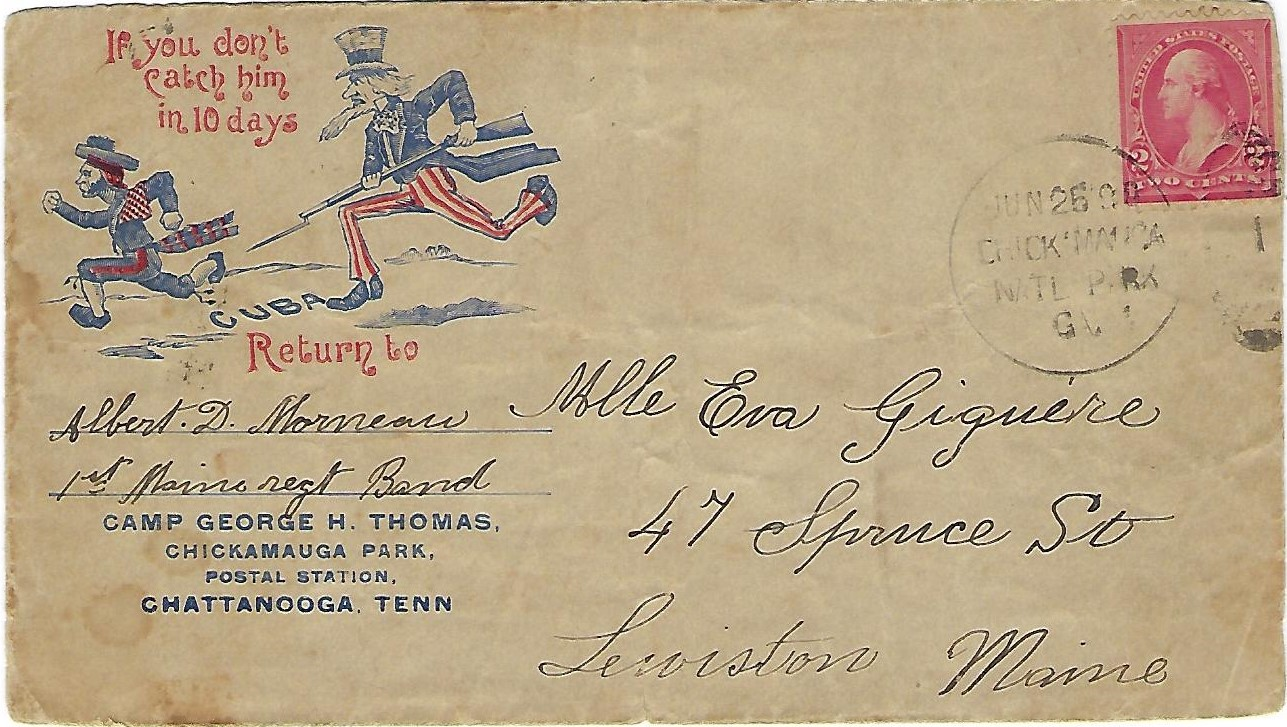 If you don't
catch him
in 10 days
CUBA
Return to
Albert. D. Morneau
1st Maine regt Band
CAMP GEORGE H. THOMAS,
CHICKAMAUGA PARK,
POSTAL STATION,
CHATTANOOGA, TENN
UNITED STATES POSTAGE
2 2
TWO CENTS
JUN 26
CHICK'MAUGA
NATL PARK
1
Mlle Eva Giguére
47 Spruce St
Lewiston Maine